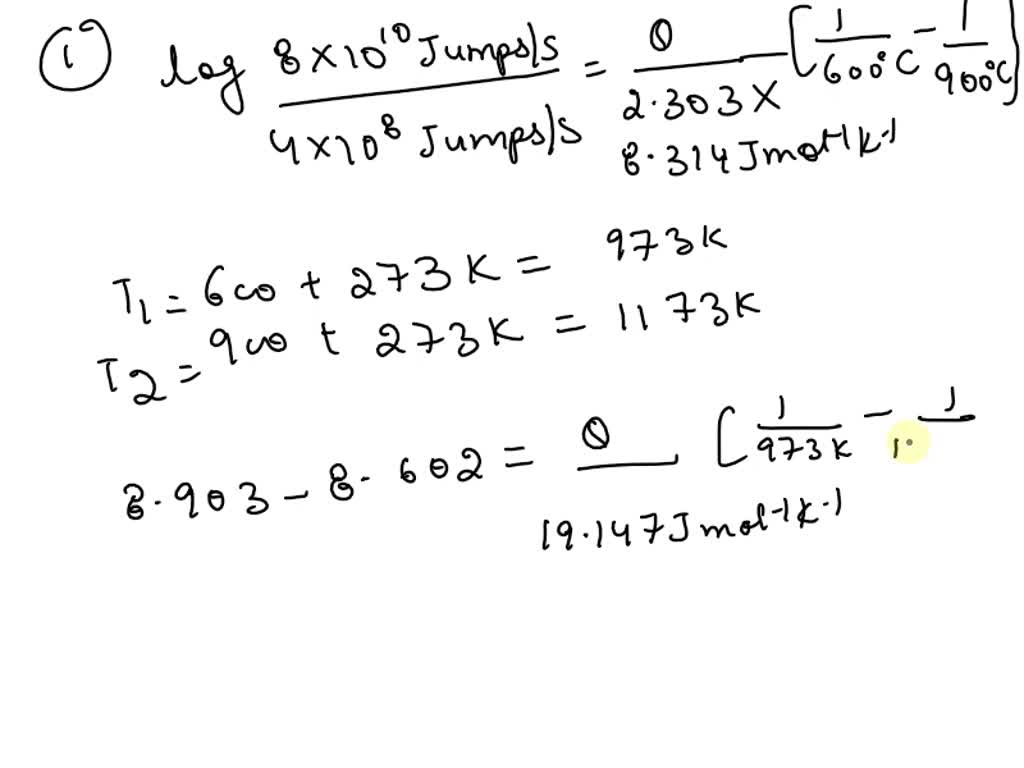 ① log 8×10¹⁰ Jumps/s / 4×10⁸ Jumps/s = Q / 2.303× 8.314 Jmol⁻¹k⁻¹ [1/600°C - 1/900°C]
T₁ = 600 + 273K = 973K
T₂ = 900 + 273K = 1173K
8.903 - 8.602 = Q / 19.147 Jmol⁻¹k⁻¹ [1/973K - 1/1